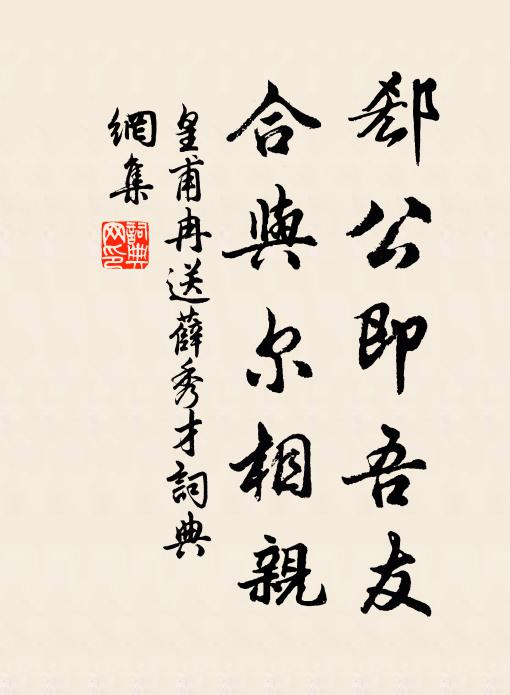 郄公即吾友
合與尔相親
皇甫冉送薛秀才詞典
網集
詞典網印